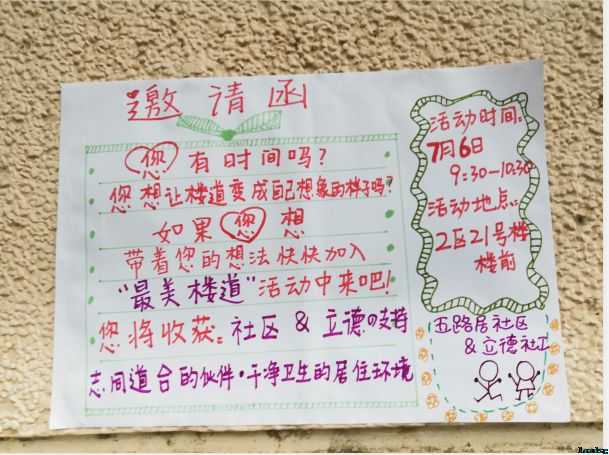 邀请函
您有时间吗？
您想让楼道变成自己想象的样子吗？
如果您想
带着您的想法快快加入
“最美楼道”活动中来吧！
您将收获：社区 & 立德的支持
志同道合的伙伴·干净卫生的居住环境
活动时间：
7月6日
9:30-10:30
活动地点：
2区21号楼
楼前
五路居社区
& 立德社工